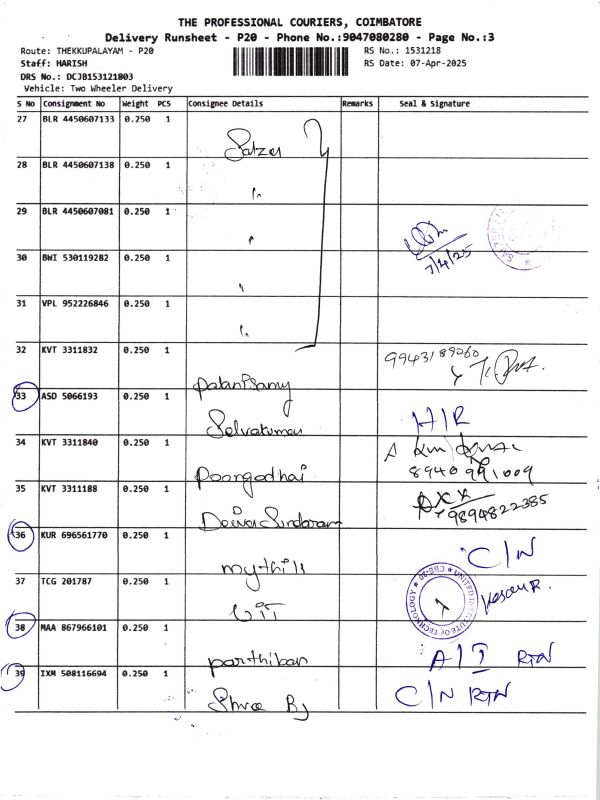 THE PROFESSIONAL COURIERS, COIMBATORE
Delivery Runsheet - P20 - Phone No.:9047080280 - Page No.:3
Route: THEKKUPALAYAM - P20
RS No.: 1531218
Staff: HARISH
RS Date: 07-Apr-2025
DRS No.: DCJB153121803
Vehicle: Two Wheeler Delivery
S No Consignment No Weight PCS Consignee Details Remarks Seal & Signature
27 BLR 4450607133 0.250 1
Salzer
28 BLR 4450607138 0.250 1
29 BLR 4450607081 0.250 1
7/4/25
30 BWI 530119282 0.250 1
31 VPL 952226846 0.250 1
32 KVT 3311832 0.250 1
9943189060
Palanisamy
33 ASD 5066193 0.250 1
Selvakumar H/R
34 KVT 3311840 0.250 1
Poongothai 8940991009
35 KVT 3311188 0.250 1
Deiva Sundaram 9894822385
36 KUR 696561770 0.250 1
mythili C/N
37 TCG 201787 0.250 1
UIT
UNITED INSTITUTE OF TECHNOLOGY ★ CBE-20 ★
38 MAA 867966101 0.250 1
parthiban A/I RTN
39 IXM 508116694 0.250 1
Shree Bj C/N RTN